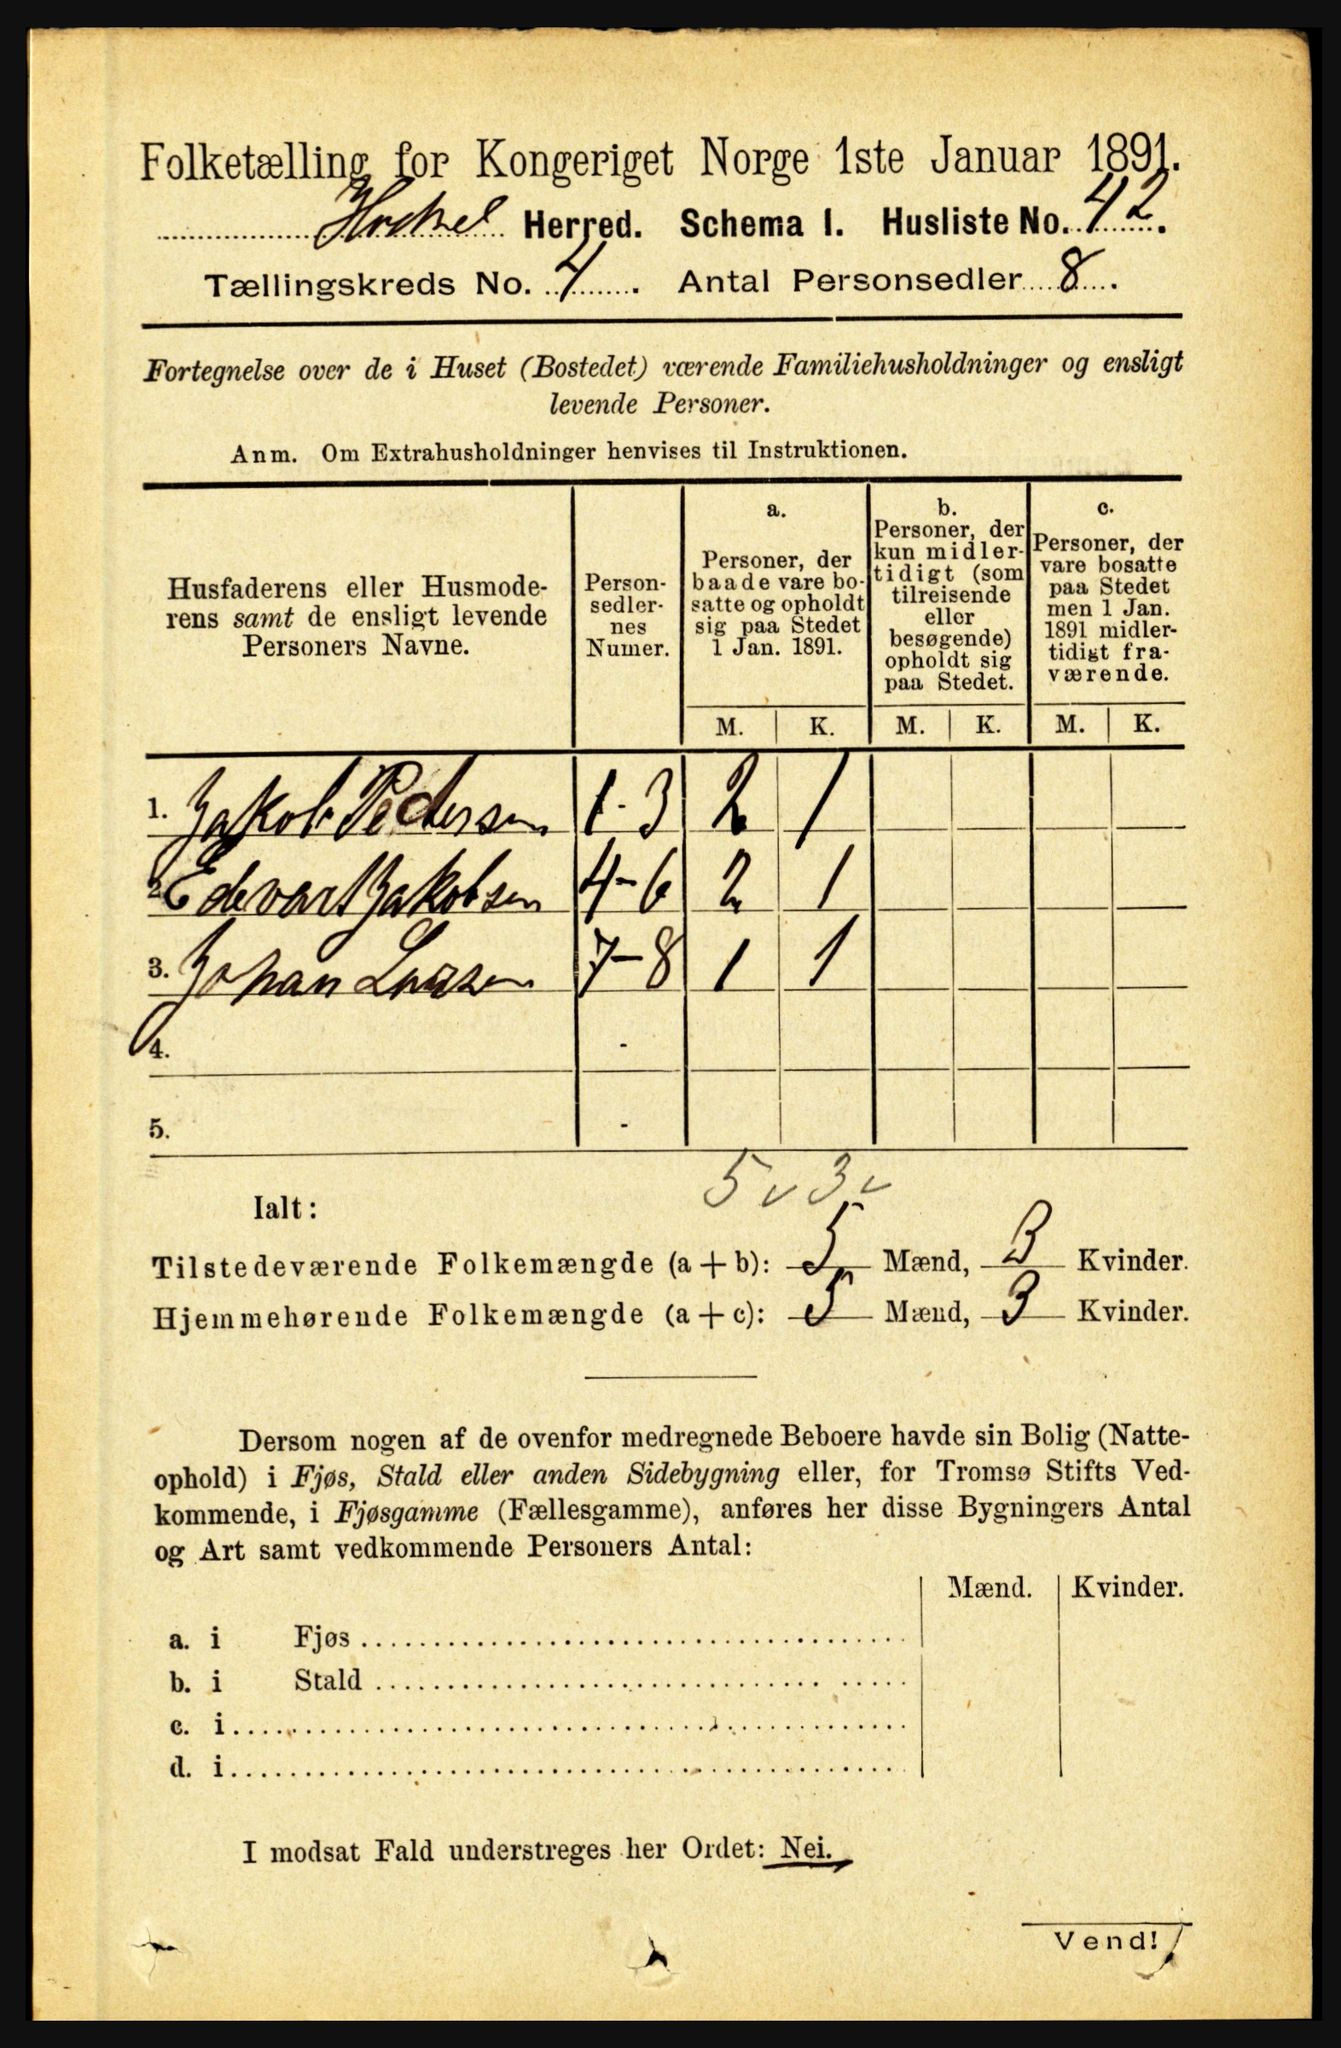 Folketælling for Kongeriget Norge 1ste Januar 1891.
Herred. Schema I. Husliste No. 42.
Tællingskreds No. 4. Antal Personsedler 8.
Fortegnelse over de i Huset (Bostedet) værende Familiehusholdninger og ensligt
levende Personer.
Anm. Om Extrahusholdninger henvises til Instruktionen.
Husfaderens eller Husmode-
rens samt de ensligt levende
Personers Navne.
Person-
sedler-
nes
Numer.
a.
Personer, der
baade vare bo-
satte og opholdt
sig paa Stedet
1 Jan. 1891.
b.
Personer, der
kun midler-
tidigt (som
tilreisende
eller
besøgende)
opholdt sig
paa Stedet.
c.
Personer, der
vare bosatte
paa Stedet
men 1 Jan.
1891 midler-
tidigt fra-
værende.
M. K. M. K. M. K.
1. Jakob Pedersen 1-3 2 1
2. Edvart Jakobsen 4-6 2 1
3. Johan 7-8 1 1
4. -
5. -
5 v 3 v
Ialt:
Tilstedeværende Folkemængde (a + b): 5 Mænd, 3 Kvinder.
Hjemmehørende Folkemængde (a + c): 5 Mænd, 3 Kvinder.
Dersom nogen af de ovenfor medregnede Beboere havde sin Bolig (Natte-
ophold) i Fjøs, Stald eller anden Sidebygning eller, for Tromsø Stifts Ved-
kommende, i Fjøsgamme (Fællesgamme), anføres her disse Bygningers Antal
og Art samt vedkommende Personers Antal:
Mænd. Kvinder.
a. i Fjøs
b. i Stald
c. i
d. i
I modsat Fald understreges her Ordet: Nei.
Vend!